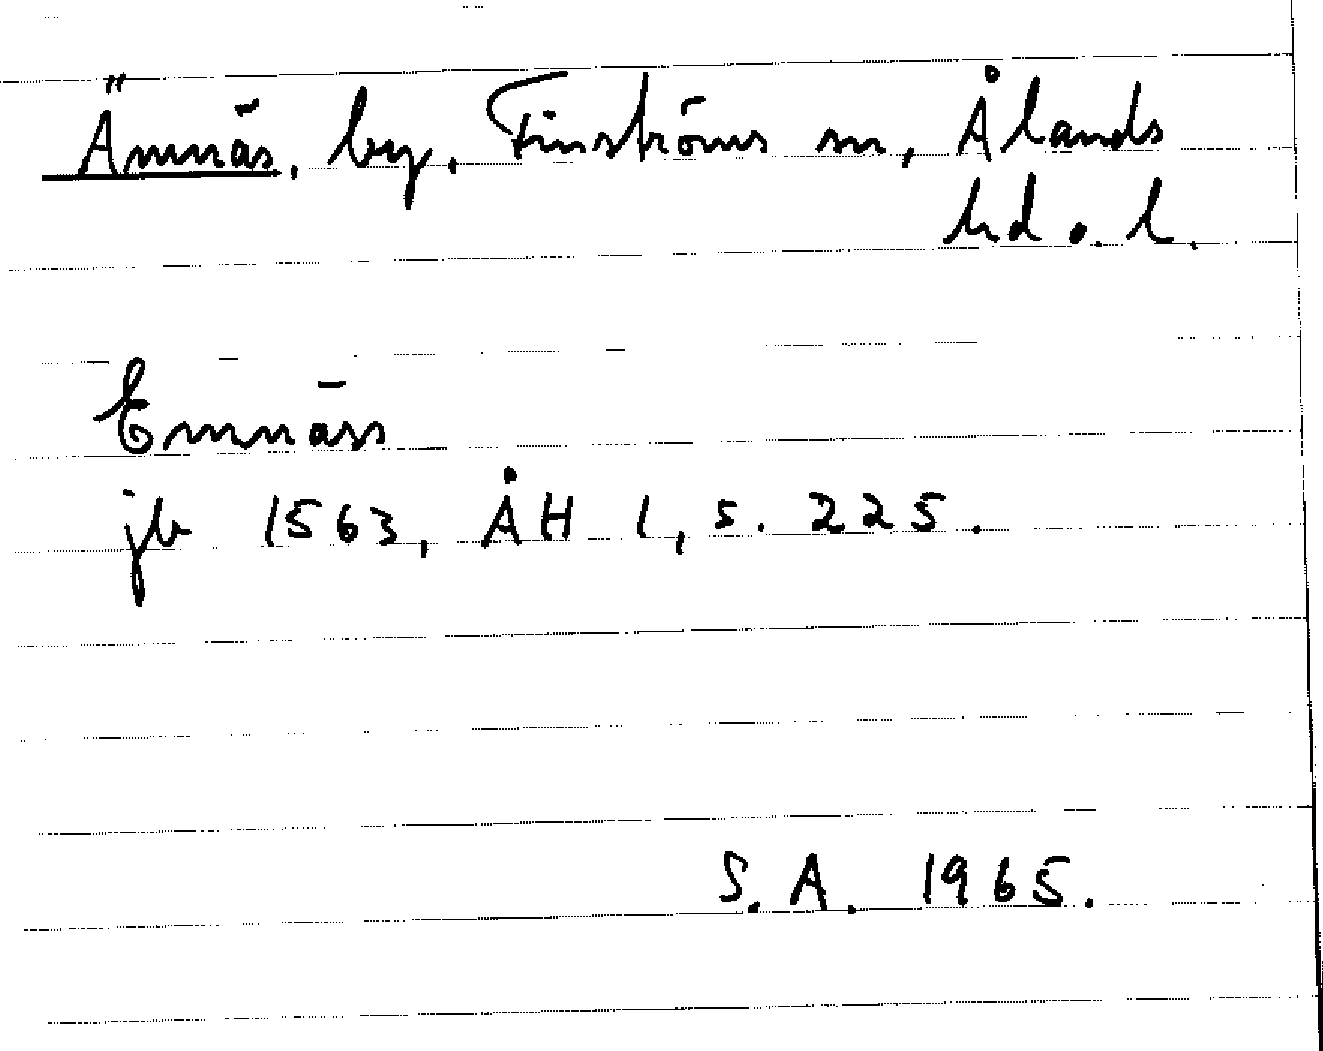 Ämnäs, by, Finströms sn, Ålands
hd o. l.
Emnäss
jb 1563, ÅH 1, s. 225.
S. A. 1965.